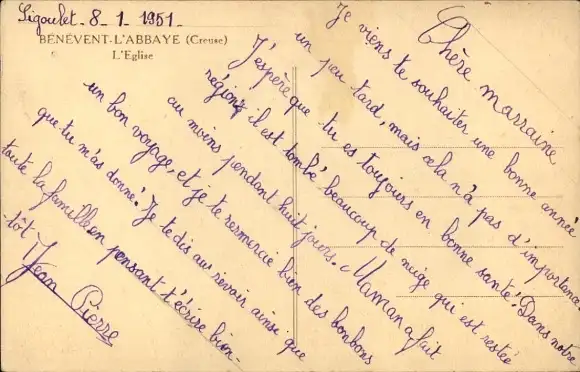 Sigoulet - 8 - 1 . 1951 -
BÉNÉVENT-L'ABBAYE (Creuse)
L'Eglise
Chère marraine,
Je viens te souhaiter une bonne année
un peu tard, mais cela n'a pas d'importance.
J'espère que tu es toujours en bonne santé. Dans notre
région, il est tombé beaucoup de neige qui est restée
au moins pendant huit jours. Maman a fait
un bon voyage, et je te remercie bien des bonbons
que tu m'as donné. Je te dis au revoir ainsi que
toute la famille en pensant t'écrire bien-
-tôt
Jean Pierre